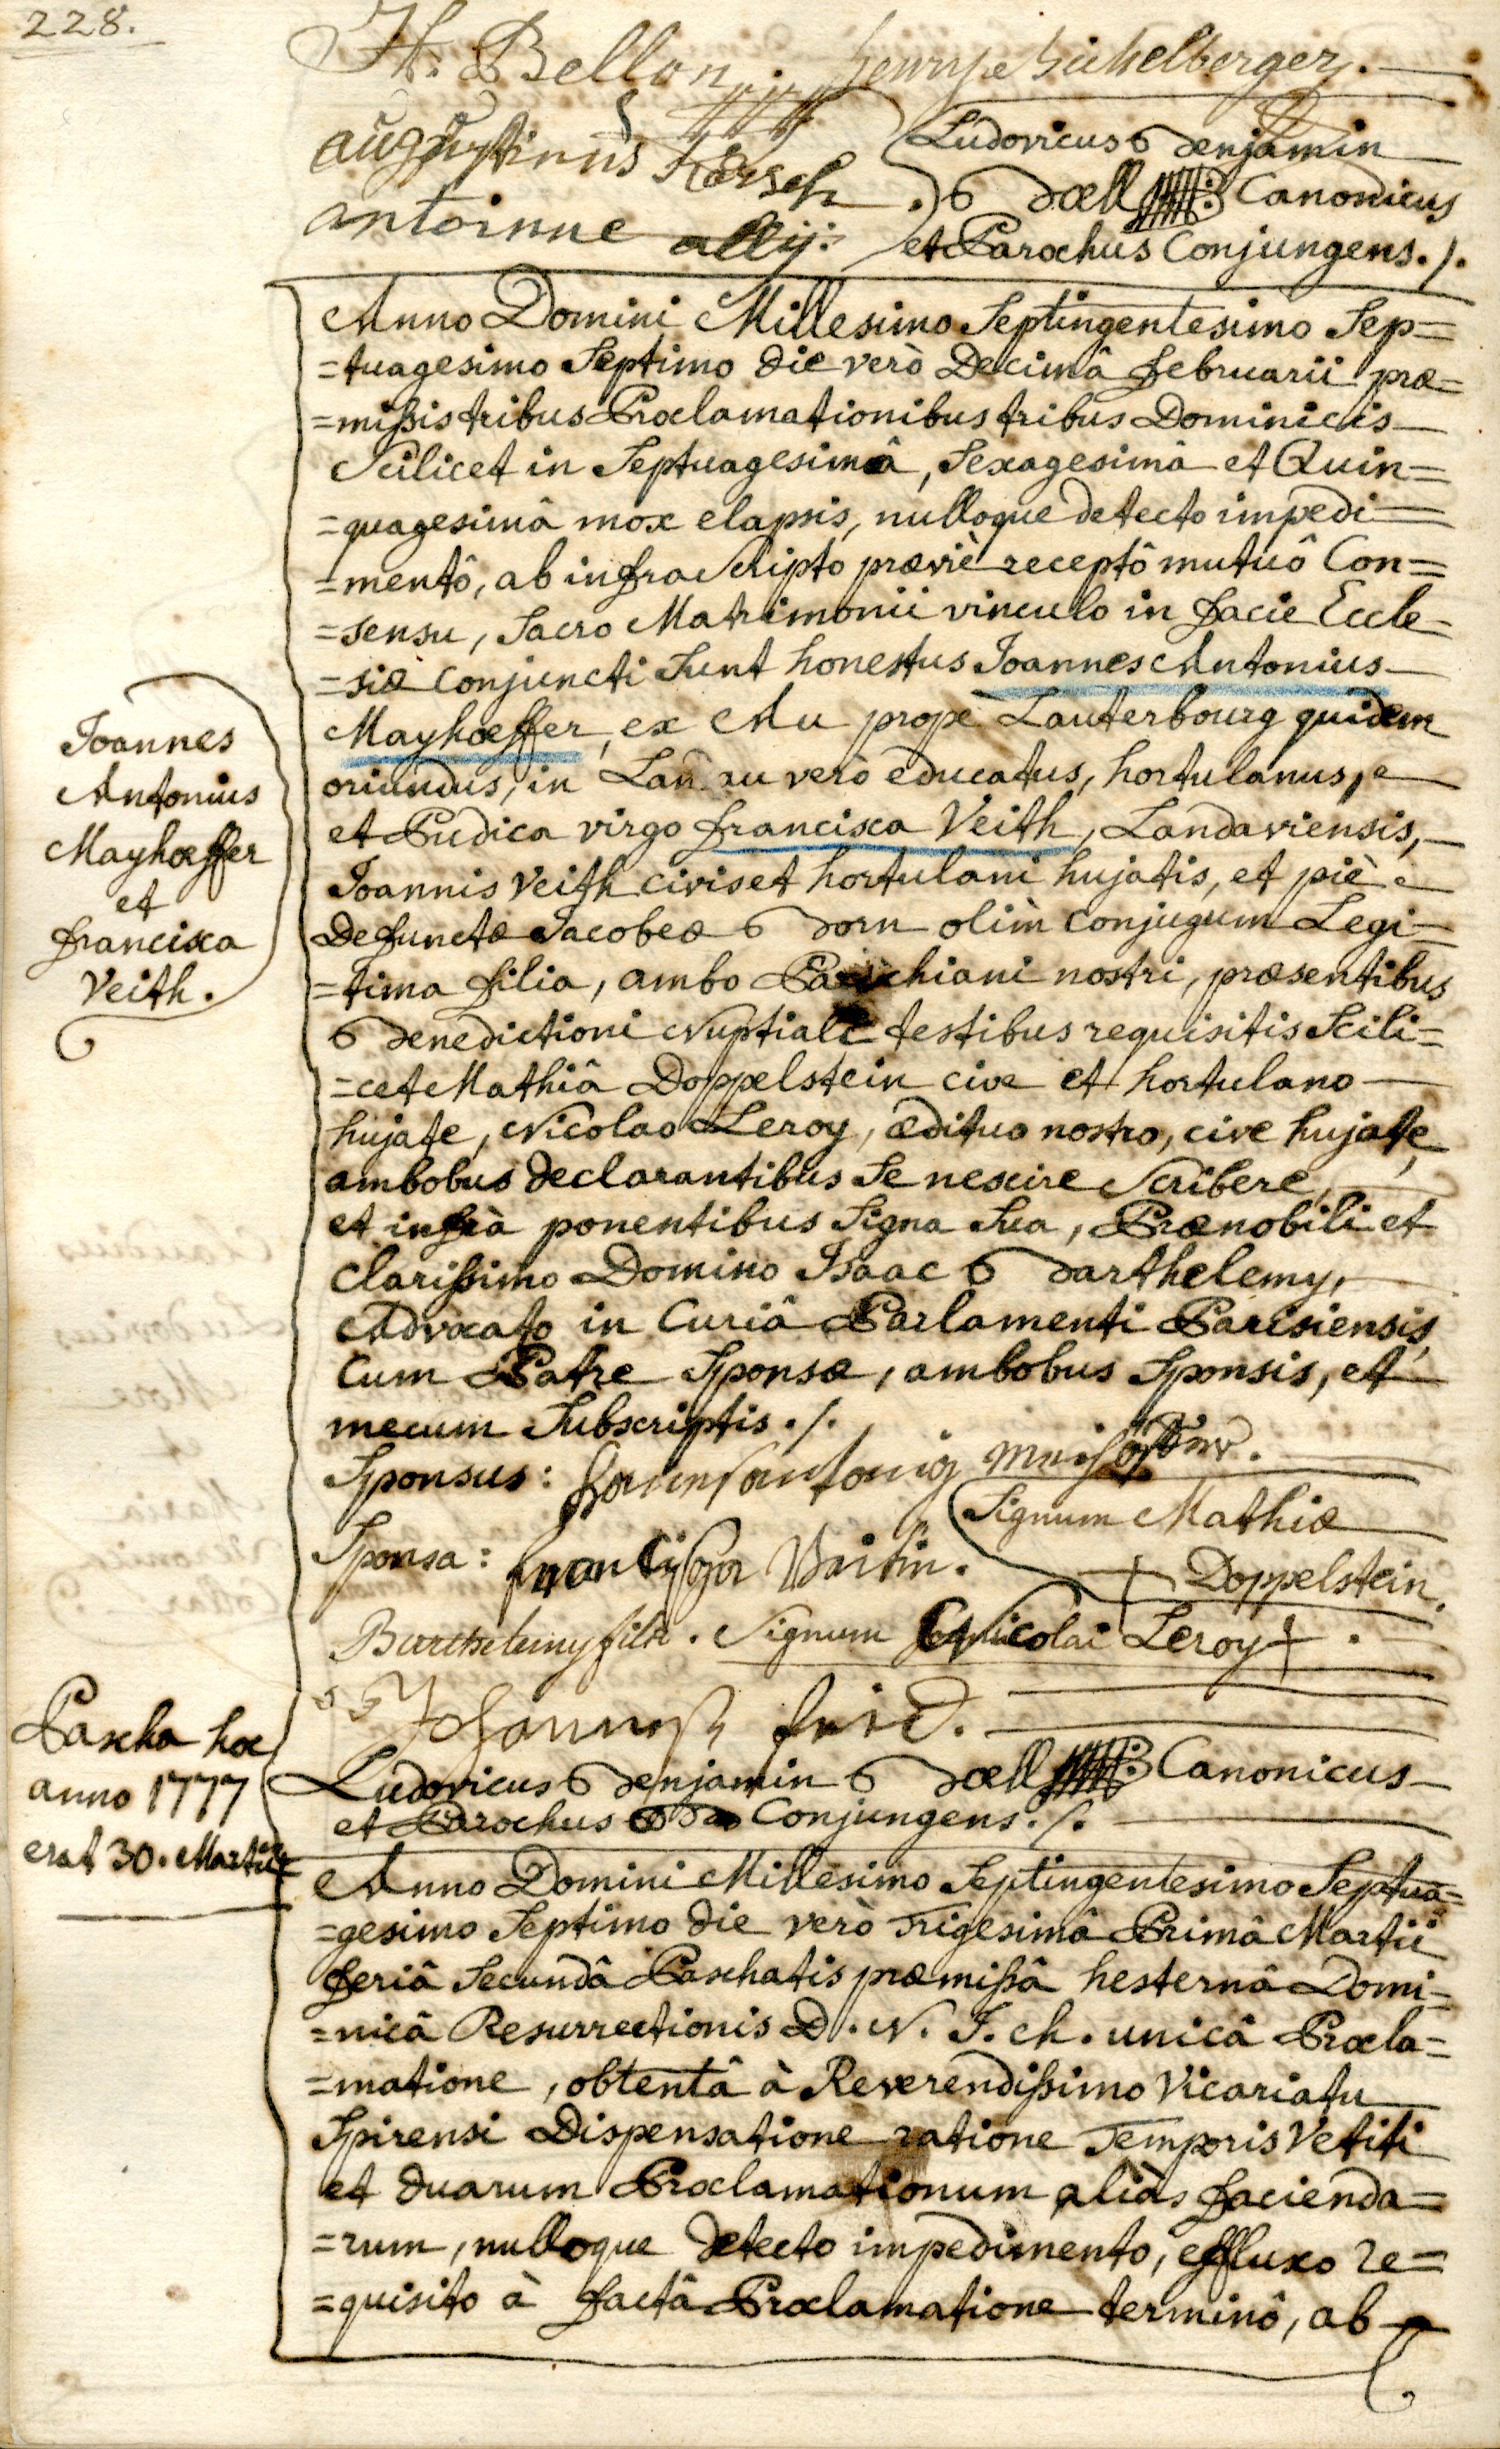 228.
H. Bellon. henry Bichelberger.
augustinus Kørsch
Ludovicus Benjamin
Boell Canonicus
antoinne allÿ:
et Parochus Conjungens ./.
Anno Domini Millesimo Septingentesimo Sep=
=tuagesimo Septimo die verò Decimâ februarii præ=
=mißis tribus Proclamationibus tribus Dominicis
Scilicet in Septuagesimâ, Sexagesimâ et Quin=
=quagesimâ mox elapsis, nulloque detecto impedi=
=mentô, ab infra Scripto præviè receptô mutuô Con=
=sensu, Sacro Matrimonii vinculo in facie Eccle=
=siæ Conjuncti Sunt honestus Joannes Antonius
Mayhoeffer, ex Au propè Lauterbourg quidem
oriundus, in Landau verò educatus, hortulanus,
et Pudica virgo francisca Veith, Landaviensis,
Joannis Veith civis et hortulani hujatis, et piè
Defunctæ Jacobeæ Born olìm Conjugum Legi=
=tima filia, ambo Parochiani nostri, præsentibus
Benedictioni Nuptiali testibus requisitis Scili=
=cet Mathiâ Doppelstein cive et hortulano
hujate, Nicolao Leroy, ædituo nostro, cive hujate,
ambobus declarantibus Se nescire Scribere,
et infrà ponentibus Signa Sua, Prænobili et
Clarißimo Domino Isaac Barthelemy,
Advocato in Curiâ Parlamenti Parisiensis,
Cum Patre Sponsæ, ambobus Sponsis, et
mecum Subscriptis ./.
Joannes
Antonius
Mayhoeffer
et
francisca
Veith.
Sponsus:
Signum Mathiæ
Sponsa: frantzißga Veithin.
Doppelstein.
Barthelemy fils. Signum Nicolai Leroy
Johannes feid.
Ludovicus Benjamin Boell Canonicus
et Parochus Conjungens ./.
Pascha hoc
anno 1777
erat 30. Martii
Anno Domini Millesimo Septingentesimo Septua=
=gesimo Septimo die verò Trigesimâ Primâ Martii
feriâ Secundâ Paschatis præmißâ hesternâ Domi=
=nicâ Resurrectionis D. N. J. ch. unicâ Procla=
=matione, obtentâ à Reverendißimo Vicariatu
Spirensi Dispensatione ratione Temporis Vetiti
et duarum Proclamationum aliàs facienda=
=rum, nulloque detecto impedimento, effluxo re=
=quisito à factâ Proclamatione terminô, ab